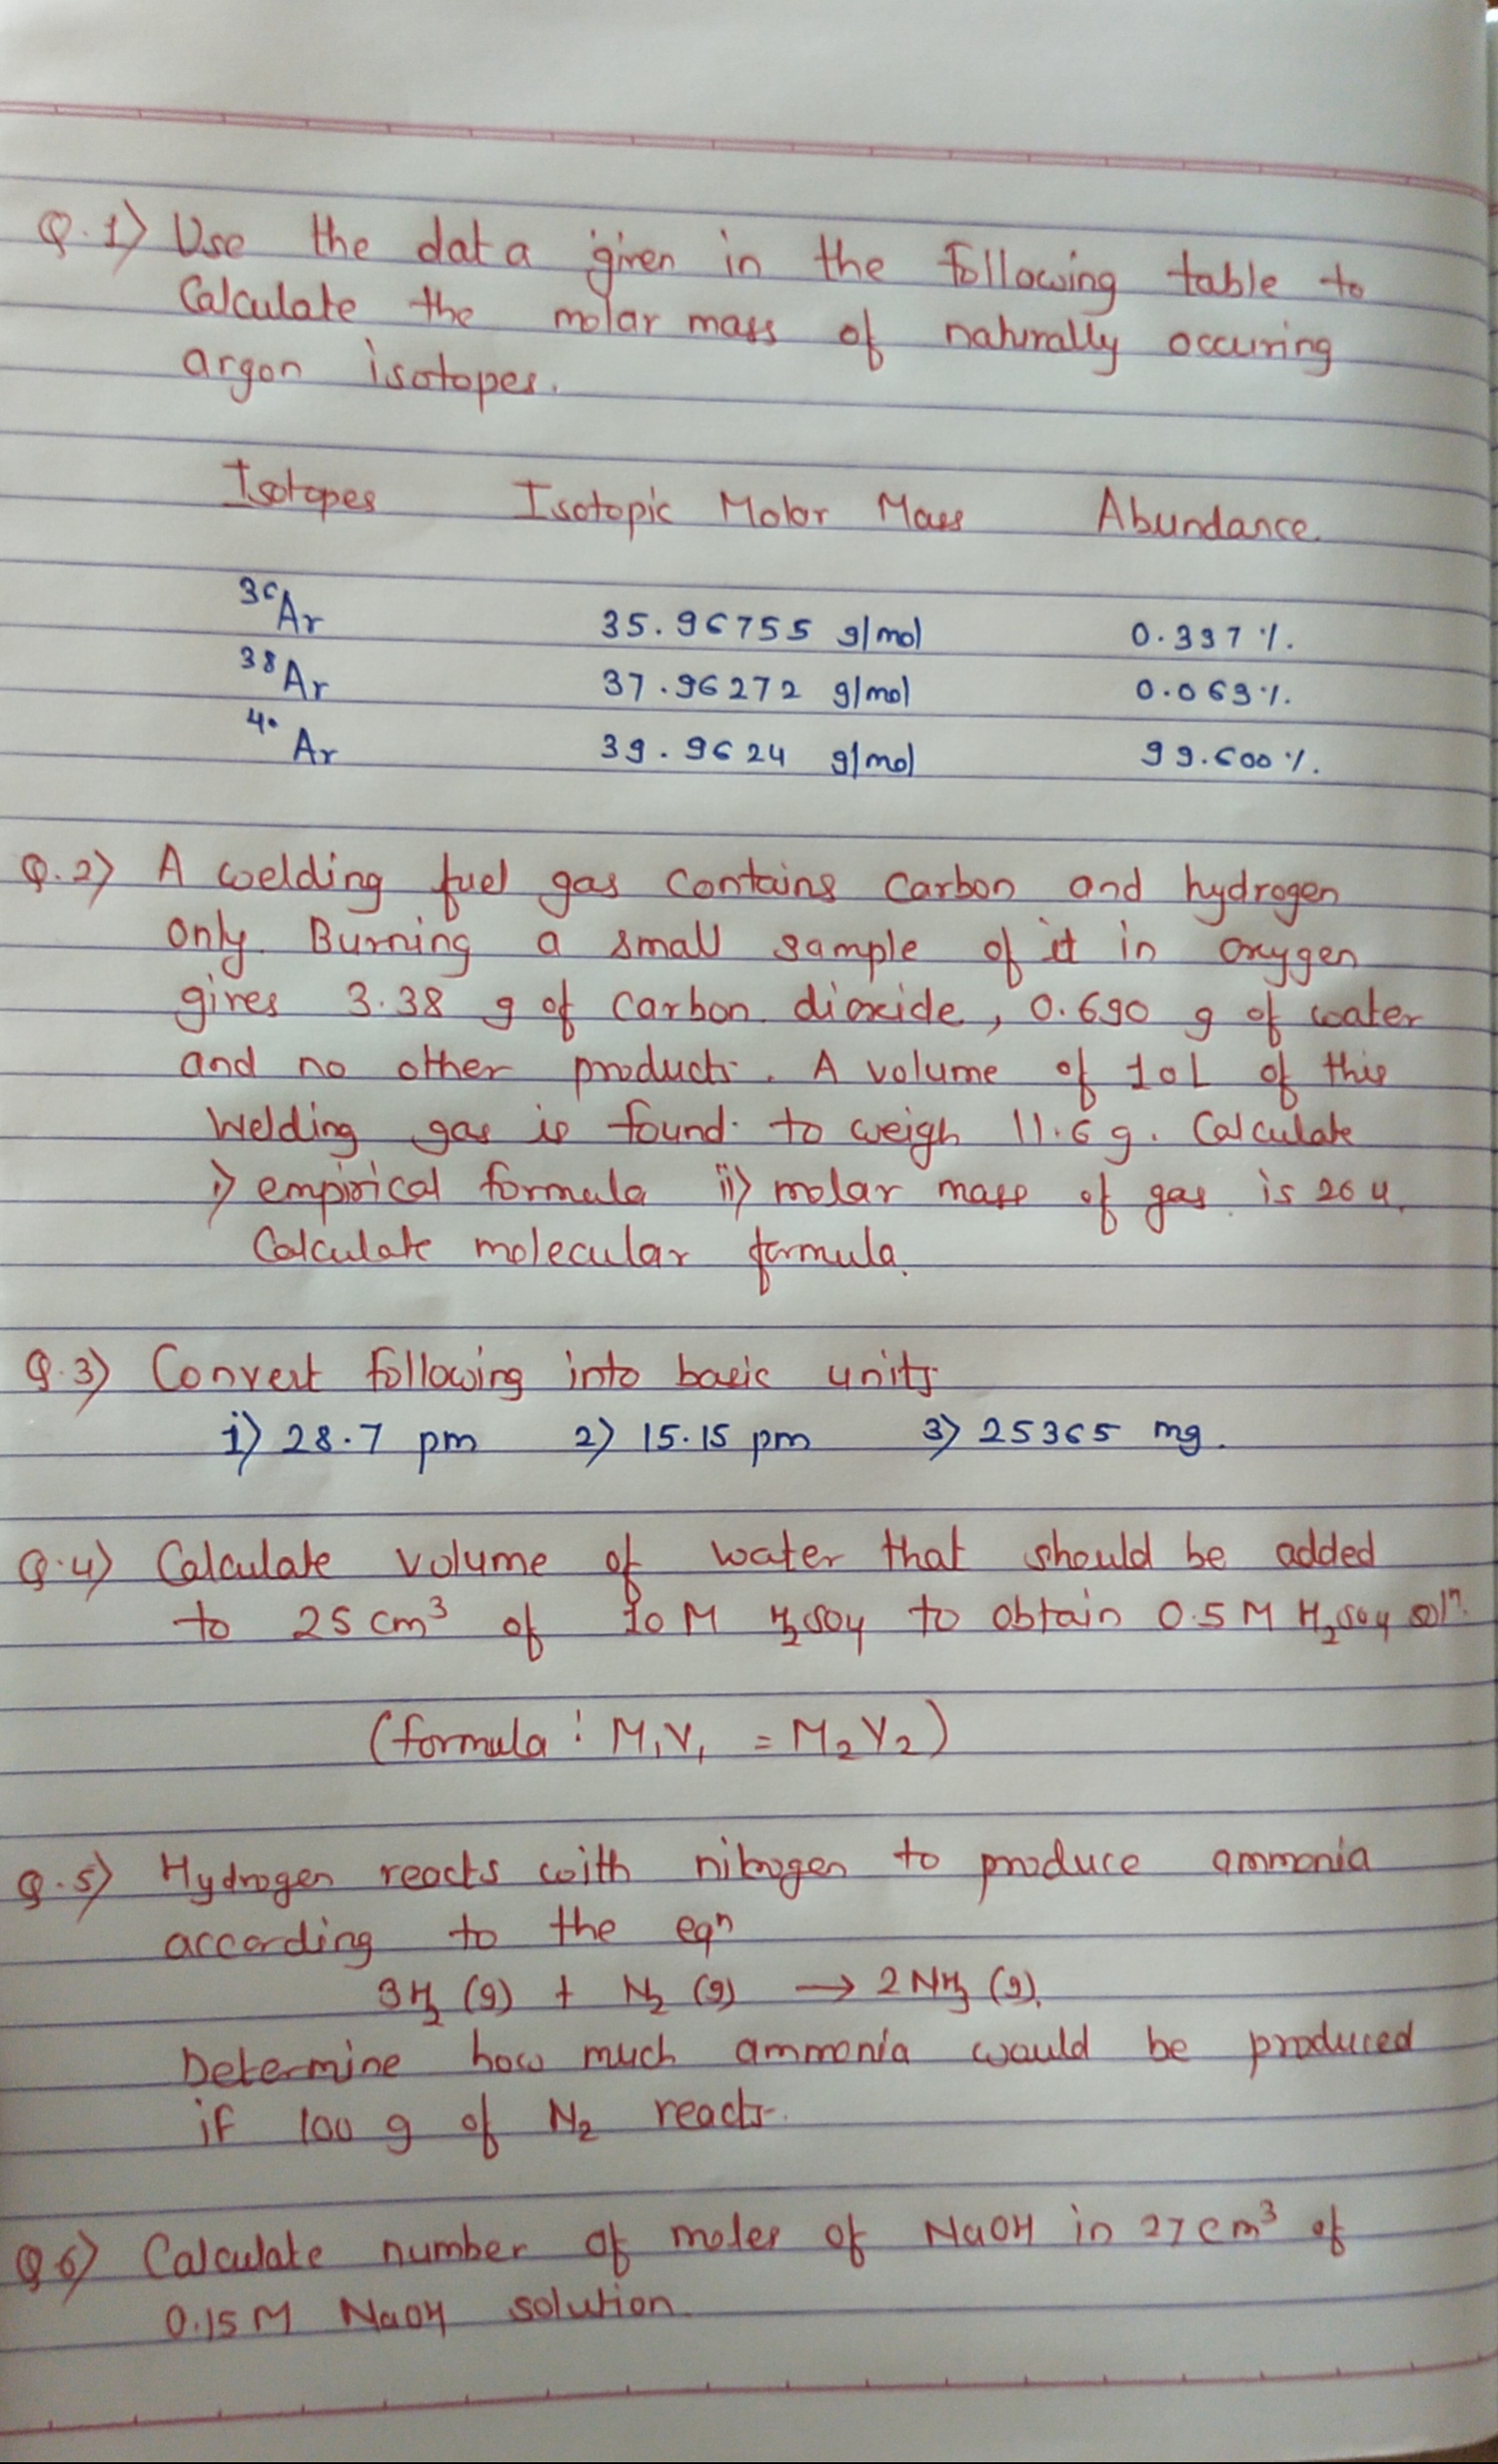 Q.1) Use the data given in the following table to
Calculate the molar mass of naturally occuring
argon isotopes.
Isotopes Isotopic Molar Mass Abundance.
³⁶Ar 35.96755 g/mol 0.337 %.
³⁸Ar 37.96272 g/mol 0.063 %.
⁴⁰Ar 39.9624 g/mol 99.600 %.
Q.2) A welding fuel gas contains carbon and hydrogen
only. Burning a small sample of it in oxygen
gives 3.38 g of carbon dioxide, 0.690 g of water
and no other products. A volume of 10L of this
Welding gas is found. to weigh 11.6 g. Calculate
i) empirical formula ii) molar mass of gas is 26 u.
Calculate molecular formula.
Q.3) Convert following into basic units
1) 28.7 pm 2) 15.15 pm 3) 25365 mg.
Q.4) Calculate volume of water that should be added
to 25 cm³ of 10 M H₂SO4 to obtain 0.5 M H₂SO4 solⁿ.
(formula : M₁V₁ = M₂V₂)
Q.5) Hydrogen reacts with nitrogen to produce ammonia
according to the eqⁿ
3H₂ (g) + N₂ (g) → 2NH₃ (g).
Determine how much ammonia would be produced
if 100 g of N₂ reacts.
Q6) Calculate number of moles of NaOH in 27cm³ of
0.15M NaOH solution.